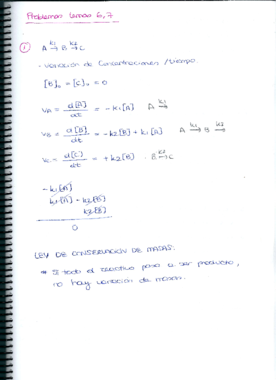 Problemas temas 6,7
① A –k1→ B –k2→ C
· Variación de Concentraciones / tiempo.
[B]₀ = [C]₀ = 0
VA = d[A]/dt = -k1[A]   A –k1→
VB = d[B]/dt = -k2[B] + k1[A]   A –k1→ B –k2→
VC = d[C]/dt = +k2[B] · B –k2→ C
-k1[A]
k1[A] - k2[B]
k2[B]
0
LEY DE CONSERVACION DE MASAS.
* Si todo el reactivo pasa a ser producto,
no hay variación de masa.